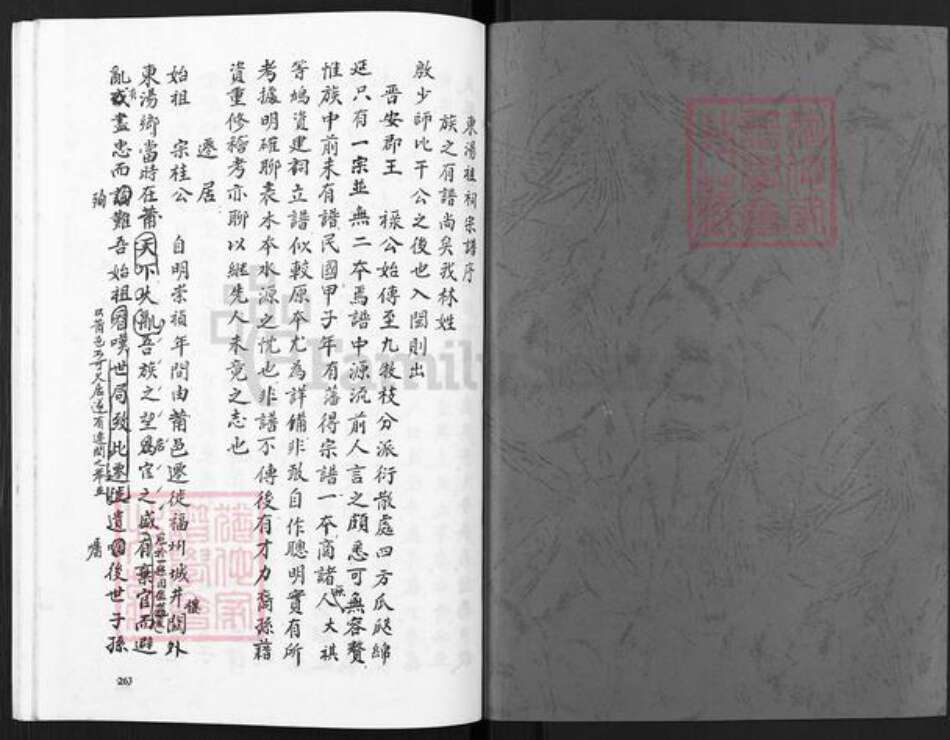 東湯祖祠宗譜序
族之有譜尚矣我林姓
殷少師比干公之後也入閩則出
晋安郡王 祿公始傳至九牧枝分派衍散處四方瓜瓞綿
延只有一宗並無二本焉譜中源流前人言之頗悉可無容贅
惟族中前未有譜民國甲子年有藩得宗譜一本商諸 人大祺
等鳩資建祠立譜似較原本尤為詳備非敢自作聰明實有所
考據明確聊表木本水源之忱也非譜不傳後有才力裔孫藉
資重修稽考亦聊以繼先人未竟之志也
遷居
始祖 宗桂公 自明崇禎年間由莆邑遷徙福州城井關外
樓
東湯鄉當時在莆天下大亂吾族之望為官之盛有棄官而避
亂或盡忠而 難吾始祖 嘆世局致此遷徙遺 後世子孫
有
殉
263